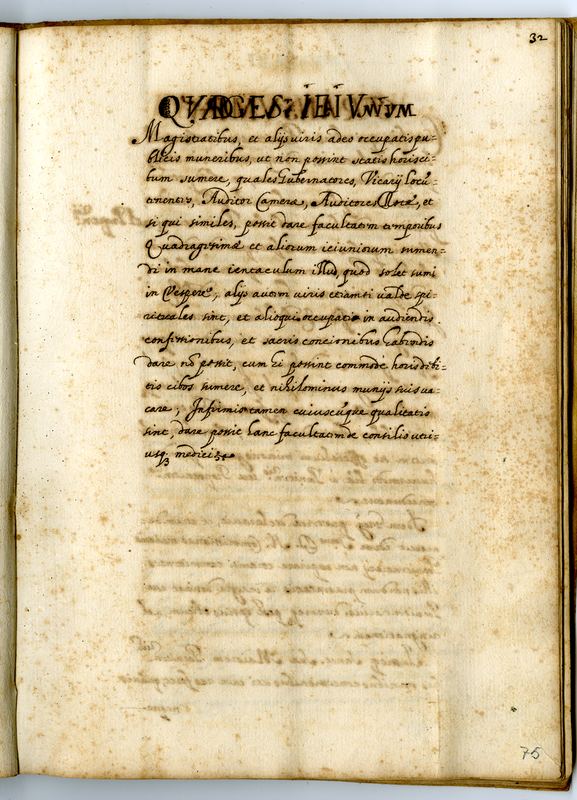 32
QVADGES: IEIVNVM
Magistratibus, et alijs viris adeo occupatis pu=
blicis muneribus, ut non possint statis horis ci=
bum sumere, quales Gubernatores, Vicarij locu=
tenentes, Auditor Cameræ, Auditores Rotæ, et
si qui similes, possit dare facultatem temporibus
Quadragesimæ et aliorum ieiuniorum sumen=
di in mane ientaculum illud, quod solet sumi
in Vespere, alijs autem viris etiamsi valde spi=
rituales sint, et alioqui occupati in audiendis
confessionibus, et sacris concionibus habendis
dare nõ possit, cum hi possint commode horis debi=
tis cibos sumere, et nihilominus munijs suis va=
care, Infirmis tamen cuiuscũque qualitatis
sint, dare possit hanc facultatem de consilio utri=
usq; medici
75